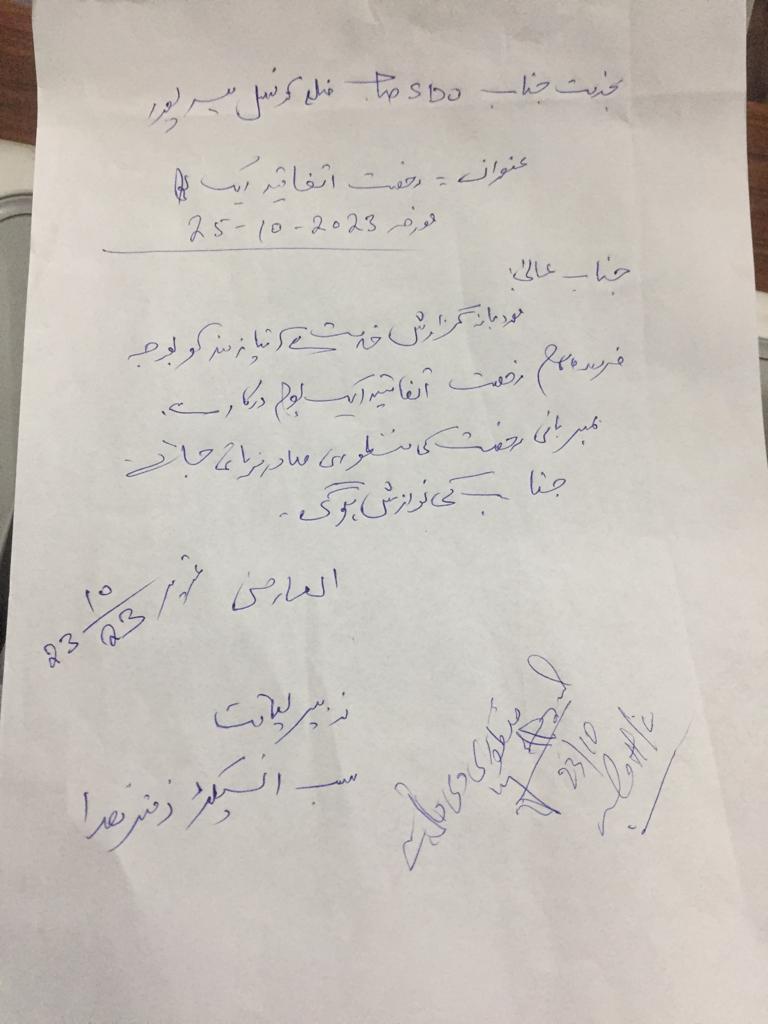 بخدمت جناب SDO صاحب ضلع کونسل میرپور
عنوان = رخصت اتفاقیہ ایک
مورخہ 25-10-2023
جناب عالیٰ!
مودبانہ گزارش خدمت ہے کہ نیازمند کو بوجہ
ضروری کام رخصت اتفاقیہ ایک یوم درکار ہے۔
بمہربانی رخصت کی منظوری صادر فرمائی جائے
جناب کی نوازش ہوگی۔
العارض تحریر 23/10/23
زبیر لیاقت
سب انسپکٹر دفتر ھذا
منظوری دی جاتی ہے
23/10